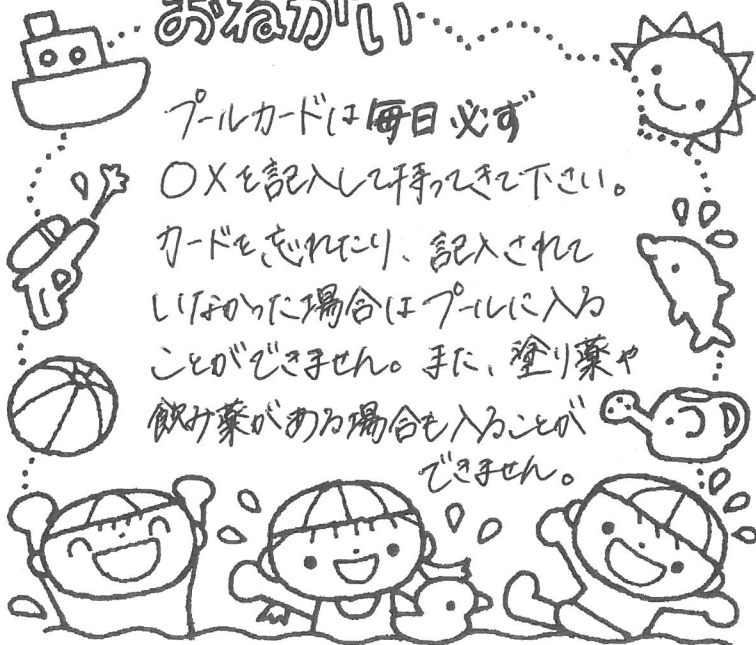 おねがい
プールカードは毎日必ず
○×を記入して持ってきて下さい。
カードを忘れたり、記入されて
いなかった場合はプールに入る
ことができません。また、塗り薬や
飲み薬がある場合も入ることが
できません。